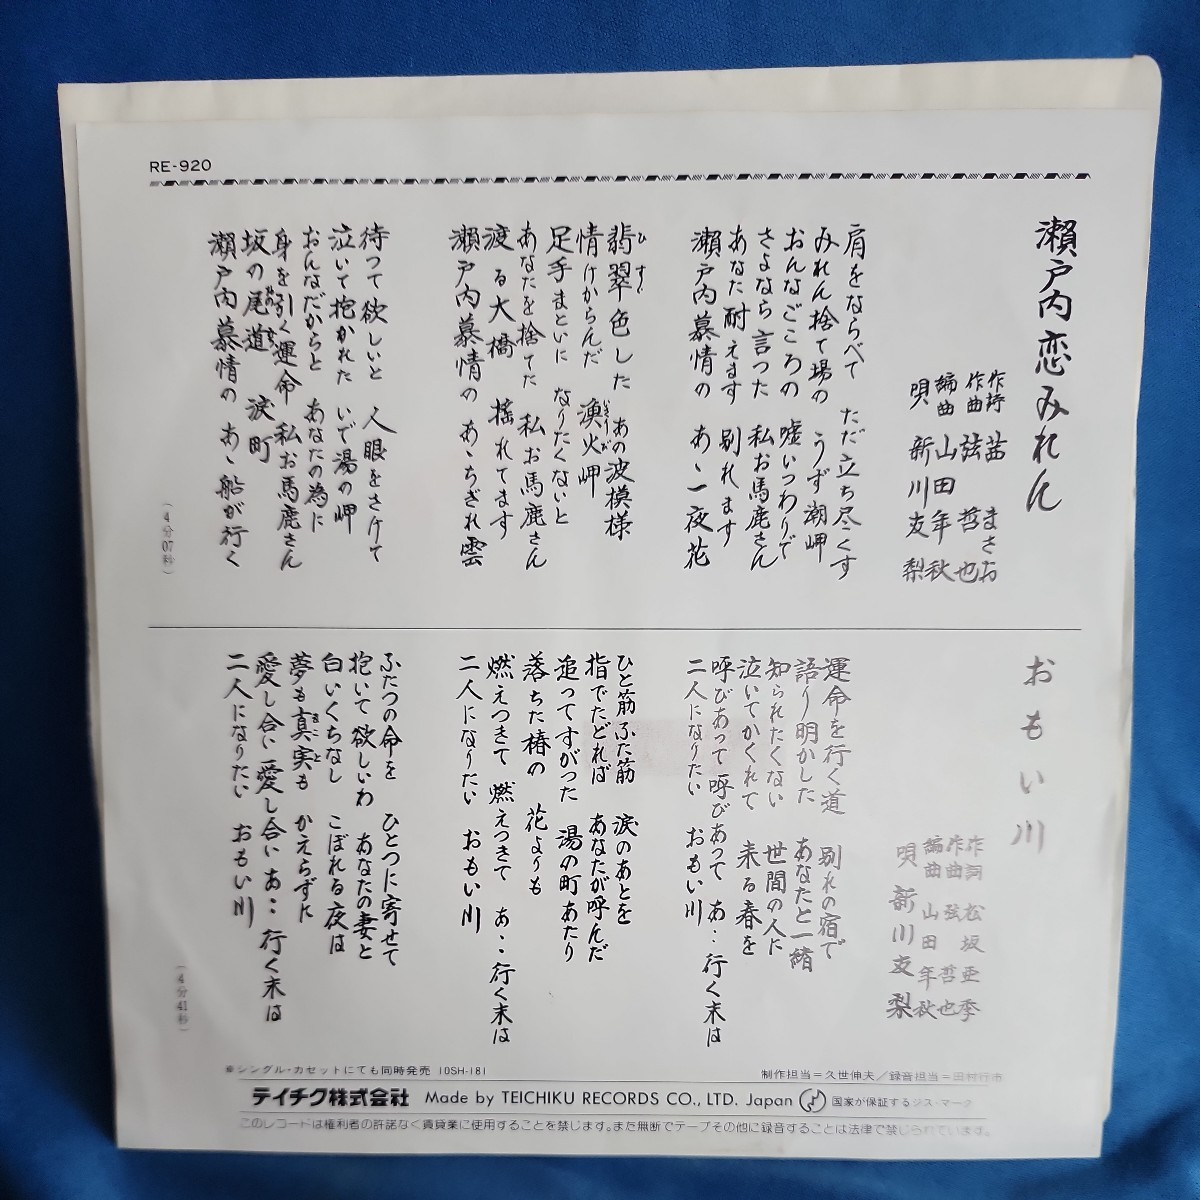 RE-920
瀬戸内恋みれん
作詩 茜まさお
作曲 弦哲也
編曲 山田年秋
唄 新川友梨
肩をならべて ただ立ち尽くす
みれん捨て場の うず潮岬
おんなごころの 嘘いつわりで
さよなら言った 私お馬鹿さん
あなた耐えます 別れます
瀬戸内慕情の あゝ一夜花
翡翠色した あの波模様
ひすい
情けからんだ 漁火岬
いさりび
足手まといに なりたくないと
あなたを捨てた 私お馬鹿さん
渡る大橋 揺れてます
瀬戸内慕情の あゝちぎれ雲
待って欲しいと 人眼をさけて
泣いて抱かれた いで湯の岬
おんなだからと あなたの為に
身を引く運命 私お馬鹿さん
坂の尾道 涙町
おのみち
瀬戸内慕情の あゝ船が行く
(4分07秒)
おもい川
作詞 松坂亜季
作曲 弦哲也
編曲 山田年秋
唄 新川友梨
運命を行く道 別れの宿で
語り明かした あなたと一緒
知られたくない 世間の人に
泣いてかくれて 来る春を
呼びあって 呼びあって あ‥行く末は
二人になりたい おもい川
ひと筋ふた筋 涙のあとを
指でたどれば あなたが呼んだ
追ってすがった 湯の町あたり
落ちた椿の 花よりも
燃えつきて 燃えつきて あ‥行く末は
二人になりたい おもい川
ふたつの命を ひとつに寄せて
抱いて欲しいわ あなたの妻と
白いくちなし こぼれる夜は
夢も真実も かえらずに
まこと
愛し合い 愛し合い あ‥行く末は
二人になりたい おもい川
(4分41秒)
※シングル・カセットにても同時発売 10SH-181
制作担当=久世伸夫/録音担当=田村行市
テイチク株式会社 Made by TEICHIKU RECORDS CO., LTD. Japan 国家が保証するジス・マーク
このレコードは権利者の許諾なく賃貸業に使用することを禁じます。また無断でテープその他に録音することは法律で禁じられています。